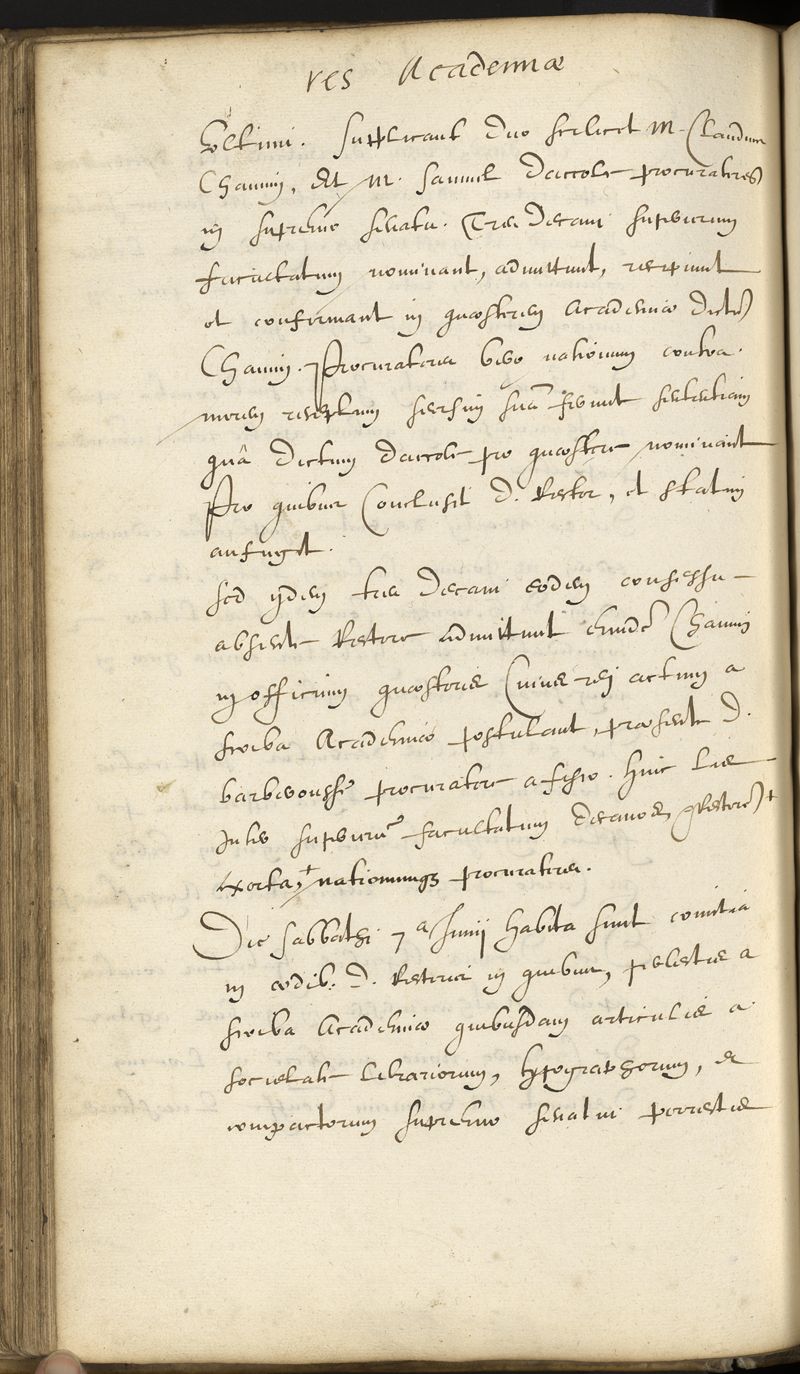 res Academiae
Soltimi. supplicant duo scilicet M. Claudium
Chamin, et M. Samuel Dacole procuratores
in supremo senatu. Tres Decani superiorum
facultatum nominant, admittunt, recipiunt
et confirmant in quaestorem Academiae dictum
Chamin. Procuratores vero nationum contra
morem receptum seorsim suam ferunt sententiam
quâ dictum Dacole pro quaestore nominant
Pro quibus Conclusit D. Rector, et statim
aufugit.
sed ijdem tres Decani eodem consessu
absente Rectore admittunt eundem Chamin
in officium quaestoris Cuius rei actum a
scriba Academiae postulant, praesente D.
barbevousse procuratore a fisco. hinc lis
Inter superiorum facultatum decanos, Rectorem
exorta, nationumque procuratores.
Die Sabbathi 7a Junij habita sunt comitia
in aedib. D. Rectoris in quibus, perlectis a
scriba Academiae quibusdam articulis a
societate librariorum, typographorum, et
compactorum supremo senatui porrectis